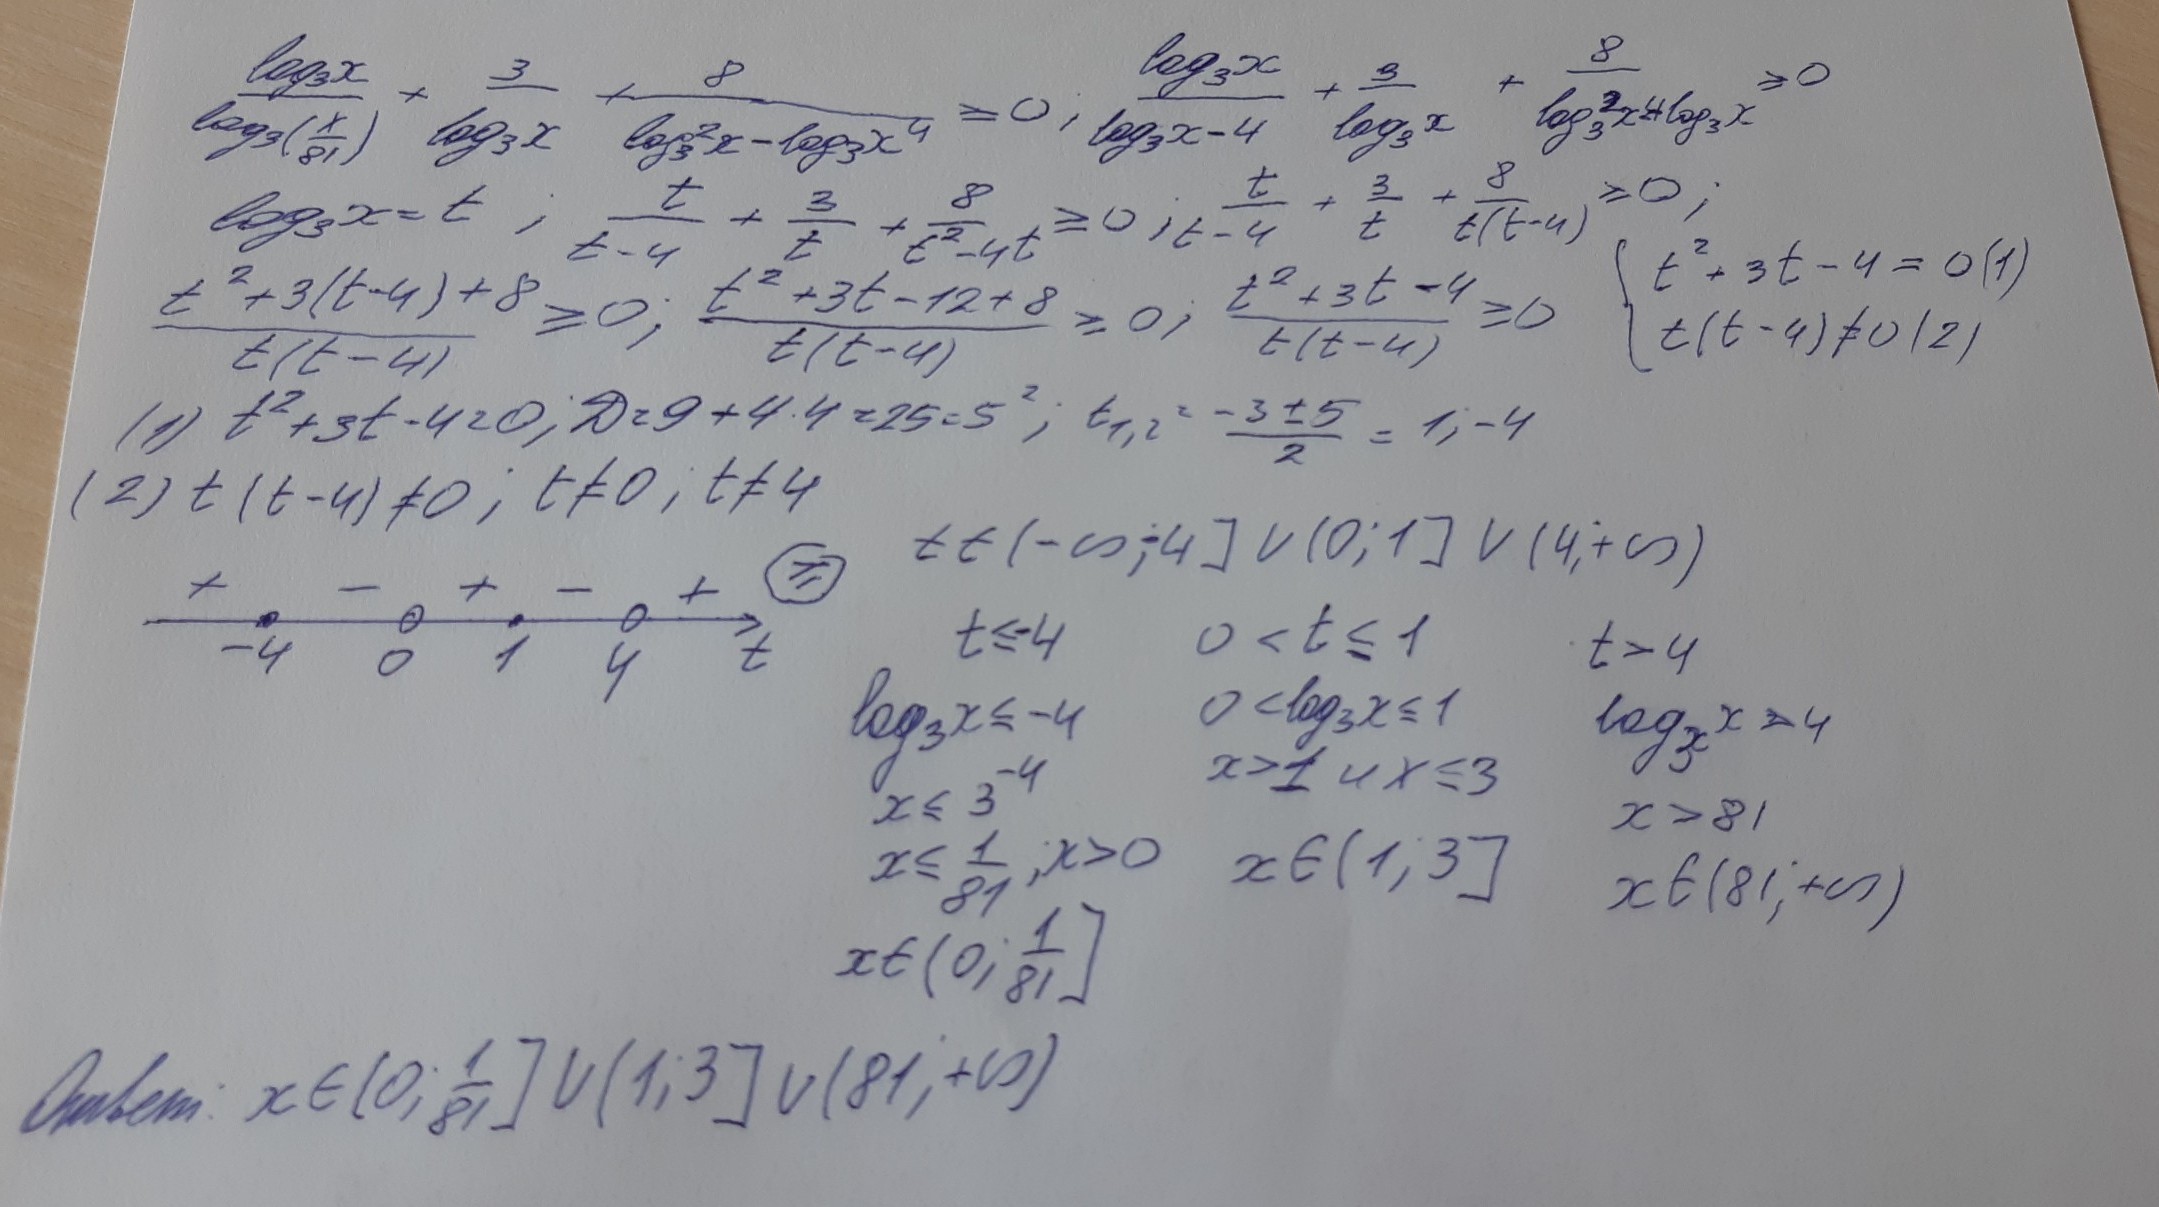 log₃x/log₃(x/81) + 3/log₃x + 8/(log₃²x - log₃x⁴) ≥ 0; log₃x/(log₃x - 4) + 3/log₃x + 8/(log₃²x - 4log₃x) ≥ 0
log₃x = t; t/(t-4) + 3/t + 8/(t²-4t) ≥ 0; t/(t-4) + 3/t + 8/(t(t-4)) ≥ 0;
(t²+3(t-4)+8)/(t(t-4)) ≥ 0; (t²+3t-12+8)/(t(t-4)) ≥ 0; (t²+3t-4)/(t(t-4)) ≥ 0 { t²+3t-4=0 (1)
t(t-4)≠0 (2)
(1) t²+3t-4=0; D=9+4·4=25=5²; t₁,₂ = (-3±5)/2 = 1; -4
(2) t(t-4)≠0; t≠0; t≠4
t∈(-∞;-4]∪(0;1]∪(4;+∞)
+ - + - + ≥
-4 0 1 4 t
t≤-4 0<t≤1 t>4
log₃x≤-4 0<log₃x≤1 log₃x>4
x≤3⁻⁴ x>1 и x≤3 x>81
x≤1/81; x>0 x∈(1;3] x∈(81;+∞)
x∈(0;1/81]
Ответ: x∈(0;1/81]∪(1;3]∪(81;+∞)